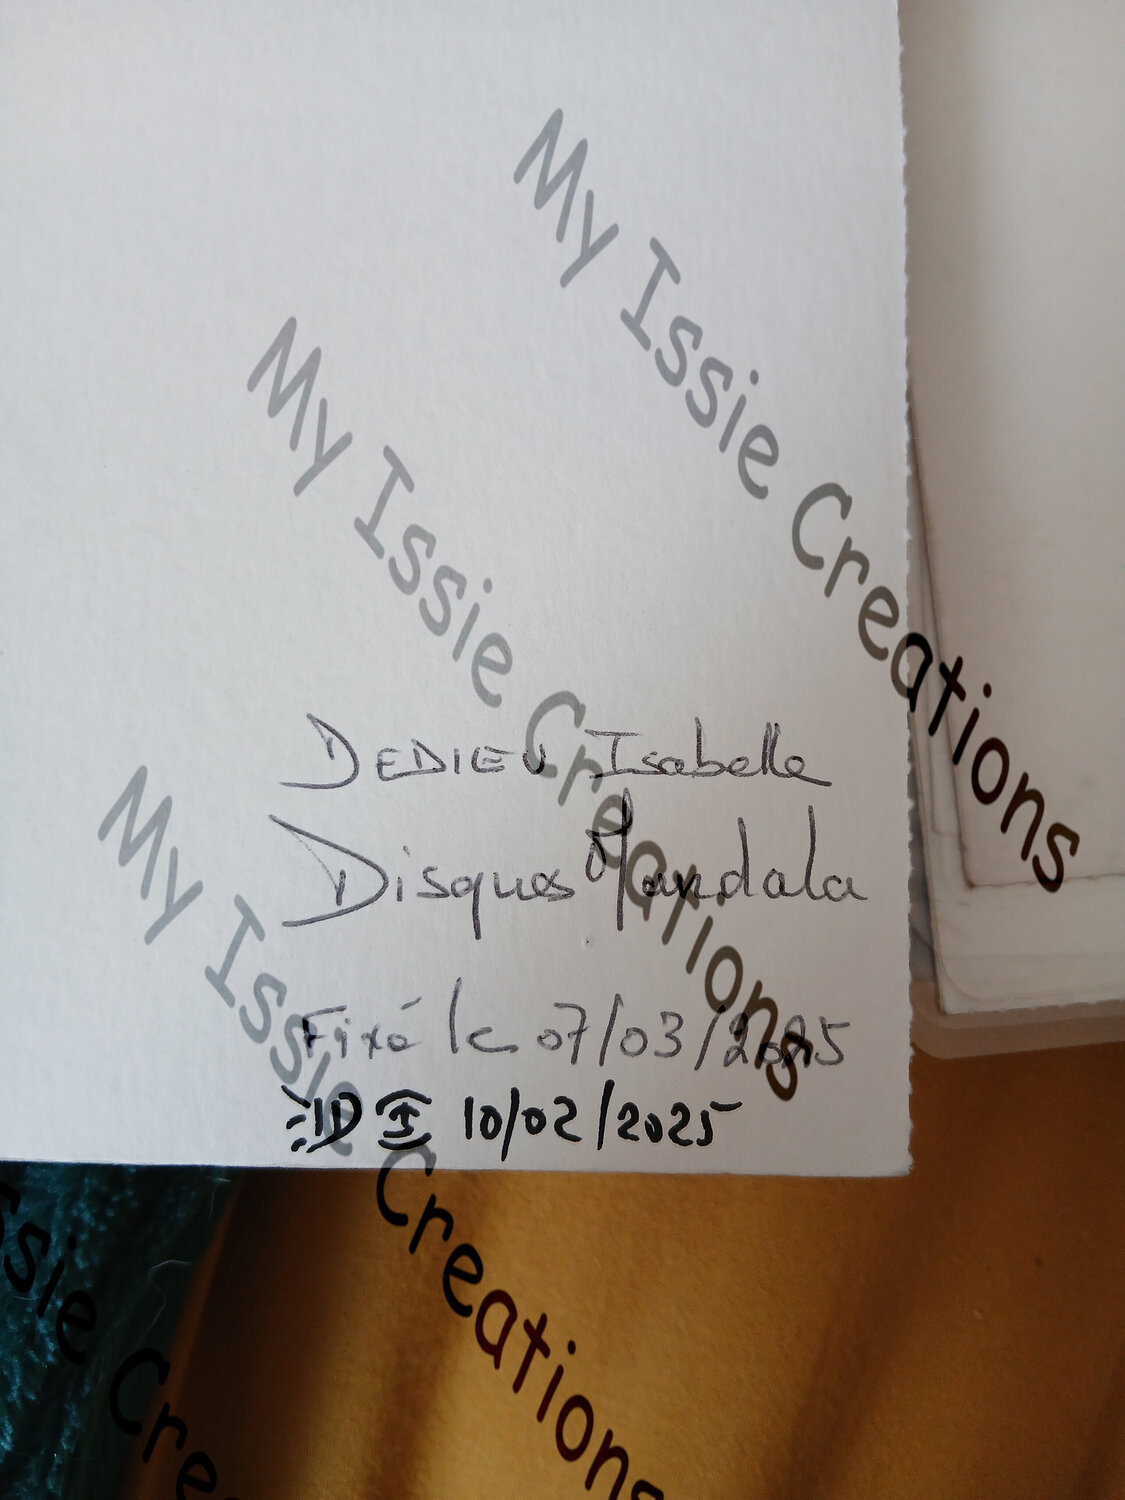 My Issie Creations
My Issie Creations
DEDIEU Isabelle
Disques Mandala
My Issie Creations
Fixé le 07/03/2025
ID I 10/02/2025
ssie Crea